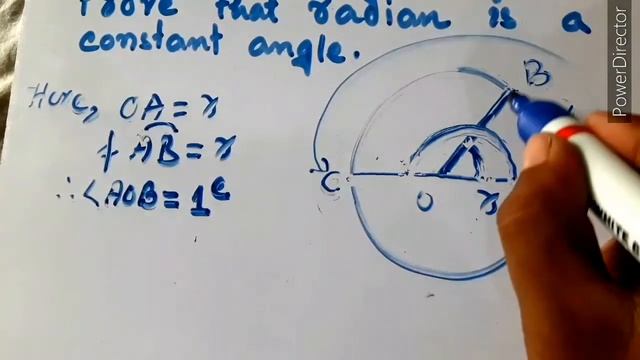 Prove that radian is a
constant angle.
Here, OA = r
& AB = r
∴ <AOB = 1ᶜ
B
C
O
r
PowerDirector